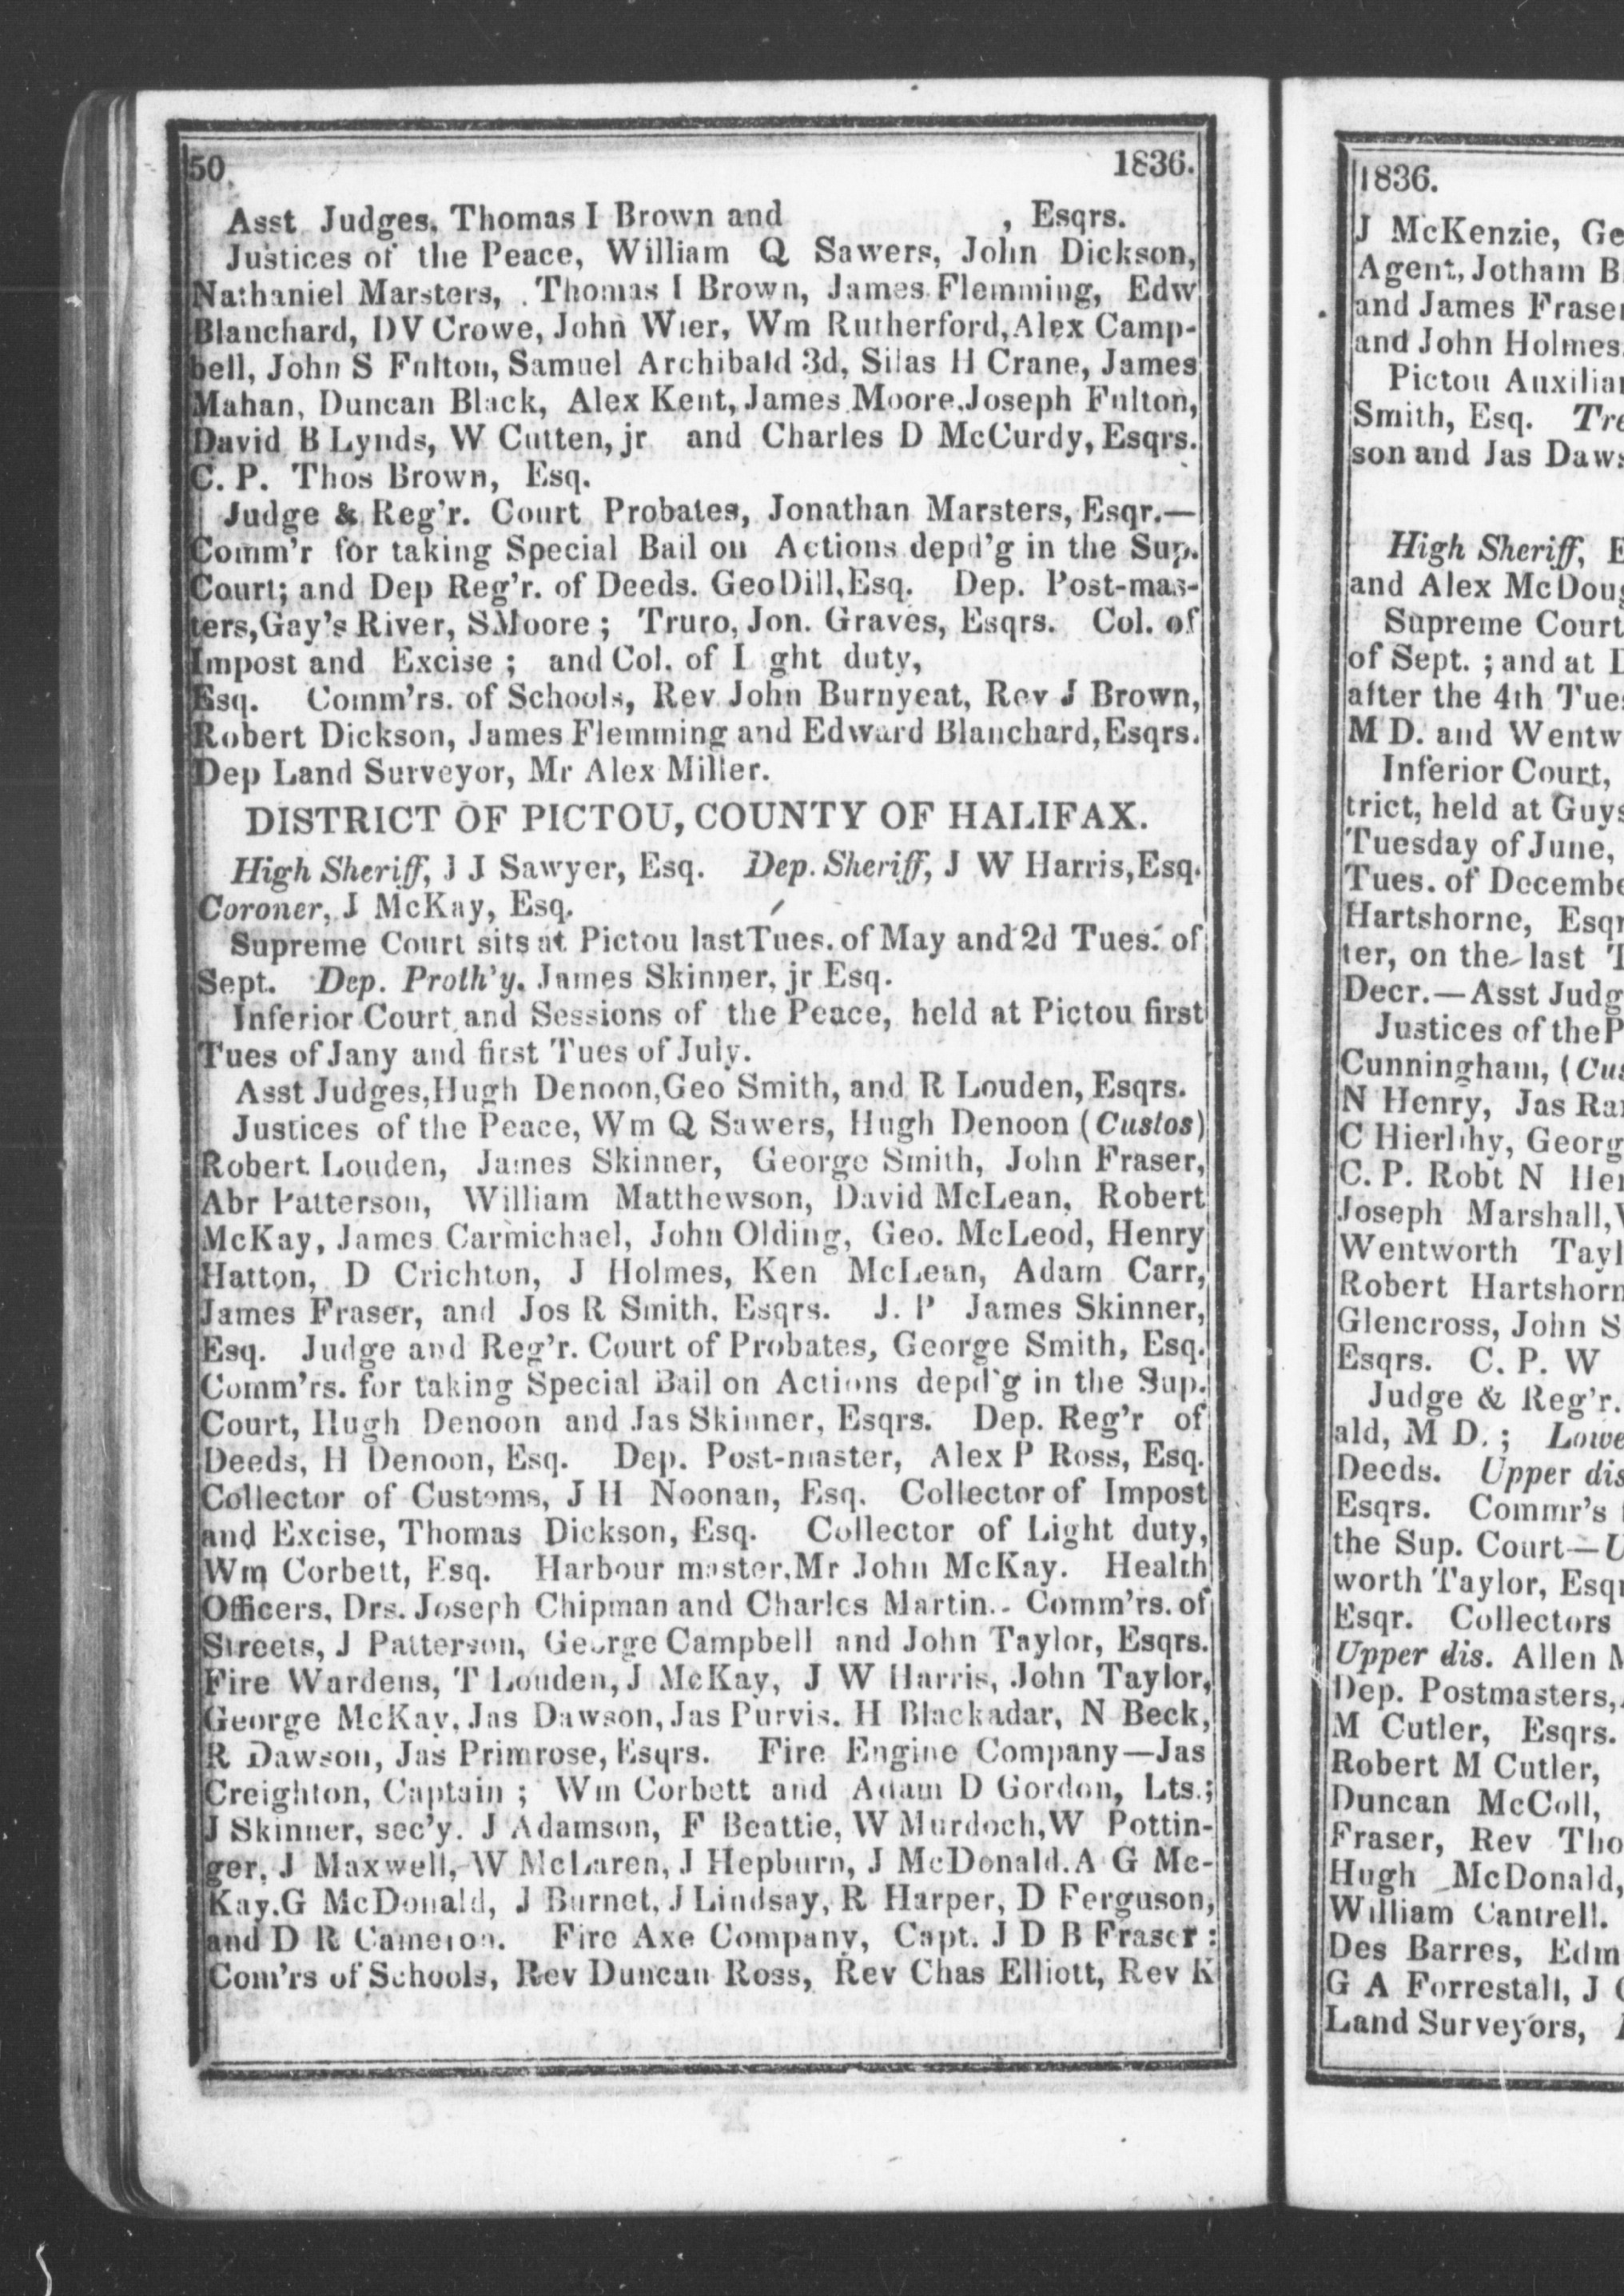 50. 1836.
Asst Judges, Thomas I Brown and , Esqrs.
Justices of the Peace, William Q Sawers, John Dickson,
Nathaniel Marsters, Thomas I Brown, James Flemming, Edw
Blanchard, DV Crowe, John Wier, Wm Rutherford, Alex Camp-
bell, John S Fulton, Samuel Archibald 3d, Silas H Crane, James
Mahan, Duncan Black, Alex Kent, James Moore, Joseph Fulton,
David B Lynds, W Cutten, jr and Charles D McCurdy, Esqrs.
C. P. Thos Brown, Esq.
Judge & Reg'r. Court Probates, Jonathan Marsters, Esqr.—
Comm'r for taking Special Bail on Actions depd'g in the Sup.
Court; and Dep Reg'r. of Deeds. Geo Dill, Esq. Dep. Post-mas-
ters, Gay's River, S Moore; Truro, Jon. Graves, Esqrs. Col. of
Impost and Excise; and Col. of L ght duty,
Esq. Comm'rs. of Schools, Rev John Burnyeat, Rev J Brown,
Robert Dickson, James Flemming and Edward Blanchard, Esqrs.
Dep Land Surveyor, Mr Alex Miller.
DISTRICT OF PICTOU, COUNTY OF HALIFAX.
High Sheriff, J J Sawyer, Esq. Dep. Sheriff, J W Harris, Esq.
Coroner, J McKay, Esq.
Supreme Court sits at Pictou last Tues. of May and 2d Tues. of
Sept. Dep. Proth'y. James Skinner, jr Esq.
Inferior Court and Sessions of the Peace, held at Pictou first
Tues of Jany and first Tues of July.
Asst Judges, Hugh Denoon, Geo Smith, and R Louden, Esqrs.
Justices of the Peace, Wm Q Sawers, Hugh Denoon (Custos)
Robert Louden, James Skinner, George Smith, John Fraser,
Abr Patterson, William Matthewson, David McLean, Robert
McKay, James Carmichael, John Olding, Geo. McLeod, Henry
Hatton, D Crichton, J Holmes, Ken McLean, Adam Carr,
James Fraser, and Jos R Smith, Esqrs. J. P James Skinner,
Esq. Judge and Reg'r. Court of Probates, George Smith, Esq.
Comm'rs. for taking Special Bail on Actions depd'g in the Sup.
Court, Hugh Denoon and Jas Skinner, Esqrs. Dep. Reg'r of
Deeds, H Denoon, Esq. Dep. Post-master, Alex P Ross, Esq.
Collector of Customs, J H Noonan, Esq. Collector of Impost
and Excise, Thomas Dickson, Esq. Collector of Light duty,
Wm Corbett, Esq. Harbour master, Mr John McKay. Health
Officers, Drs. Joseph Chipman and Charles Martin.- Comm'rs. of
Streets, J Patterson, George Campbell and John Taylor, Esqrs.
Fire Wardens, T Louden, J McKay, J W Harris, John Taylor,
George McKay, Jas Dawson, Jas Purvis, H Blackadar, N Beck,
R Dawson, Jas Primrose, Esqrs. Fire Engine Company—Jas
Creighton, Captain; Wm Corbett and Adam D Gordon, Lts.;
J Skinner, sec'y. J Adamson, F Beattie, W Murdoch, W Pottin-
ger, J Maxwell, W McLaren, J Hepburn, J McDonald, A G Mc-
Kay, G McDonald, J Burnet, J Lindsay, R Harper, D Ferguson,
and D R Cameron. Fire Axe Company, Capt. J D B Fraser:
Com'rs of Schools, Rev Duncan Ross, Rev Chas Elliott, Rev K
1836.
J McKenzie, Ge
Agent, Jotham B
and James Fraser
and John Holmes
Pictou Auxiliar
Smith, Esq. Tre
son and Jas Daws
High Sheriff, E
and Alex McDoug
Supreme Court
of Sept.; and at D
after the 4th Tues
M D. and Wentw
Inferior Court,
trict, held at Guys
Tuesday of June,
Tues. of Decembe
Hartshorne, Esqr
ter, on the last T
Decr.—Asst Judg
Justices of the P
Cunningham, (Cus
N Henry, Jas Ran
C Hierlihy, Georg
C. P. Robt N Hen
Joseph Marshall, W
Wentworth Tayl
Robert Hartshorn
Glencross, John S
Esqrs. C. P. W
Judge & Reg'r.
ald, M D.; Lowe
Deeds. Upper dis
Esqrs. Commr's
the Sup. Court—U
worth Taylor, Esqr
Esqr. Collectors
Upper dis. Allen M
Dep. Postmasters,
M Cutler, Esqrs.
Robert M Cutler,
Duncan McColl,
Fraser, Rev Tho
Hugh McDonald,
William Cantrell.
Des Barres, Edm
G A Forrestall, J
Land Surveyors,